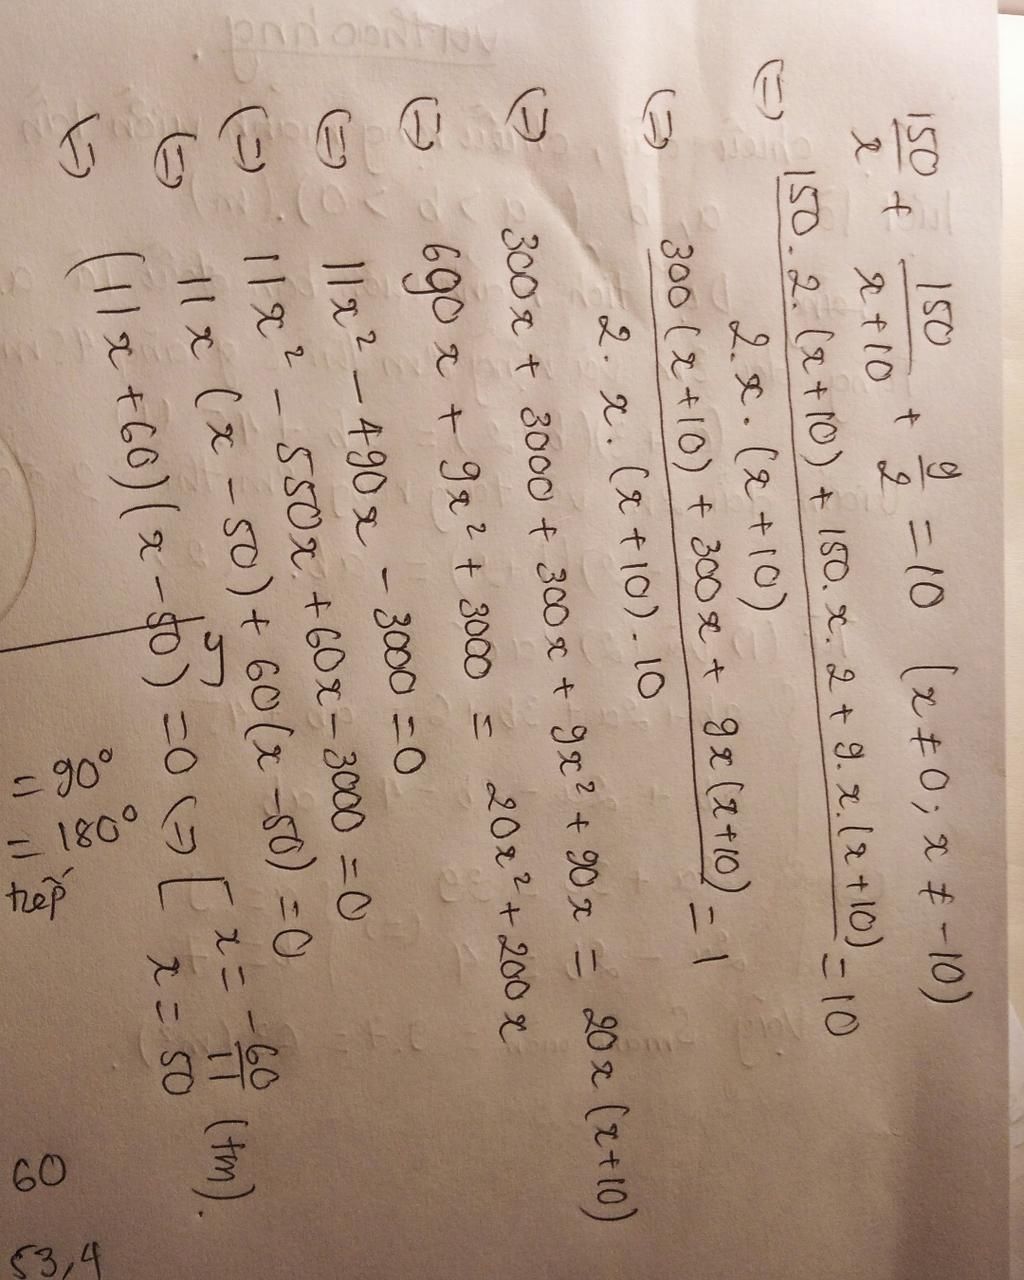 150/x + 150/x+10 + 9/2 = 10 (x ≠ 0; x ≠ -10)
(=) 150.2.(x+10) + 150.x.2 + 9.x.(x+10) / 2.x.(x+10) = 10
(=) 300(x+10) + 300x + 9x(x+10) / 2.x.(x+10).10 = 1
(=) 300x + 3000 + 300x + 9x² + 90x = 20x(x+10)
(=) 690x + 9x² + 3000 = 20x² + 200x
(=) 11x² - 490x - 3000 = 0
(=) 11x² - 550x + 60x - 3000 = 0
(=) 11x(x-50) + 60(x-50) = 0
(=) (11x+60)(x-50) = 0 (=) [ x = -60/11 (tm).
x = 50
= 90°
= 180°
tiếp
60
53,4